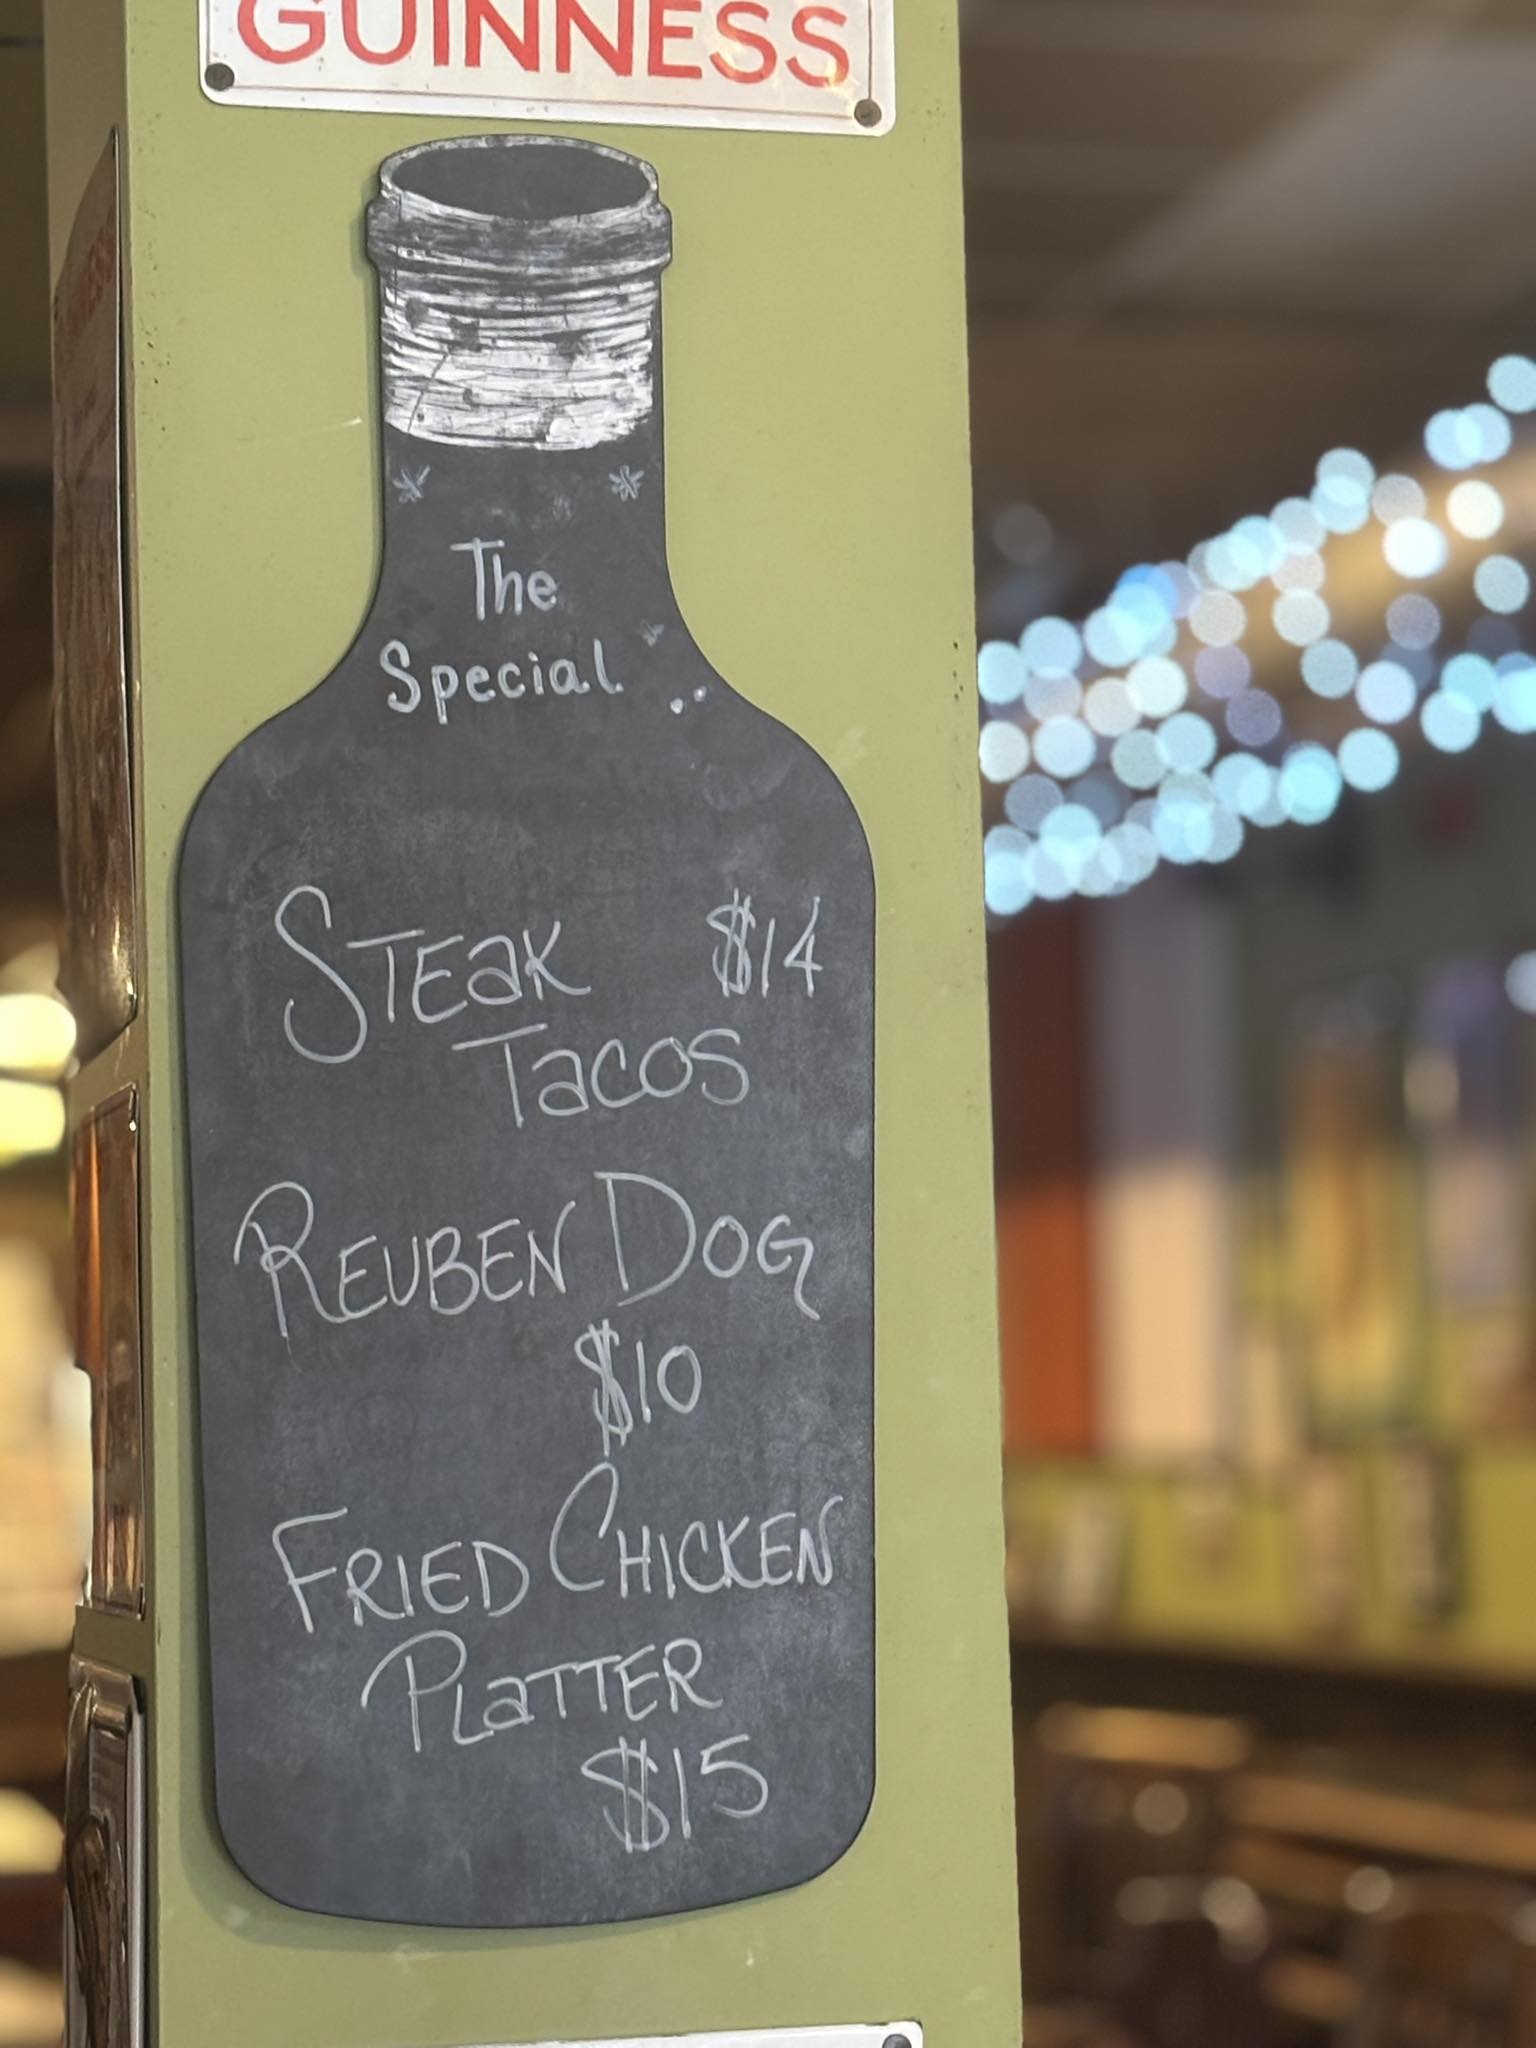 GUINNESS
The
Special
STEaK $14
TacOS
REUBEN DOG
$10
FRIED CHICKEN
PLaTTER
$15